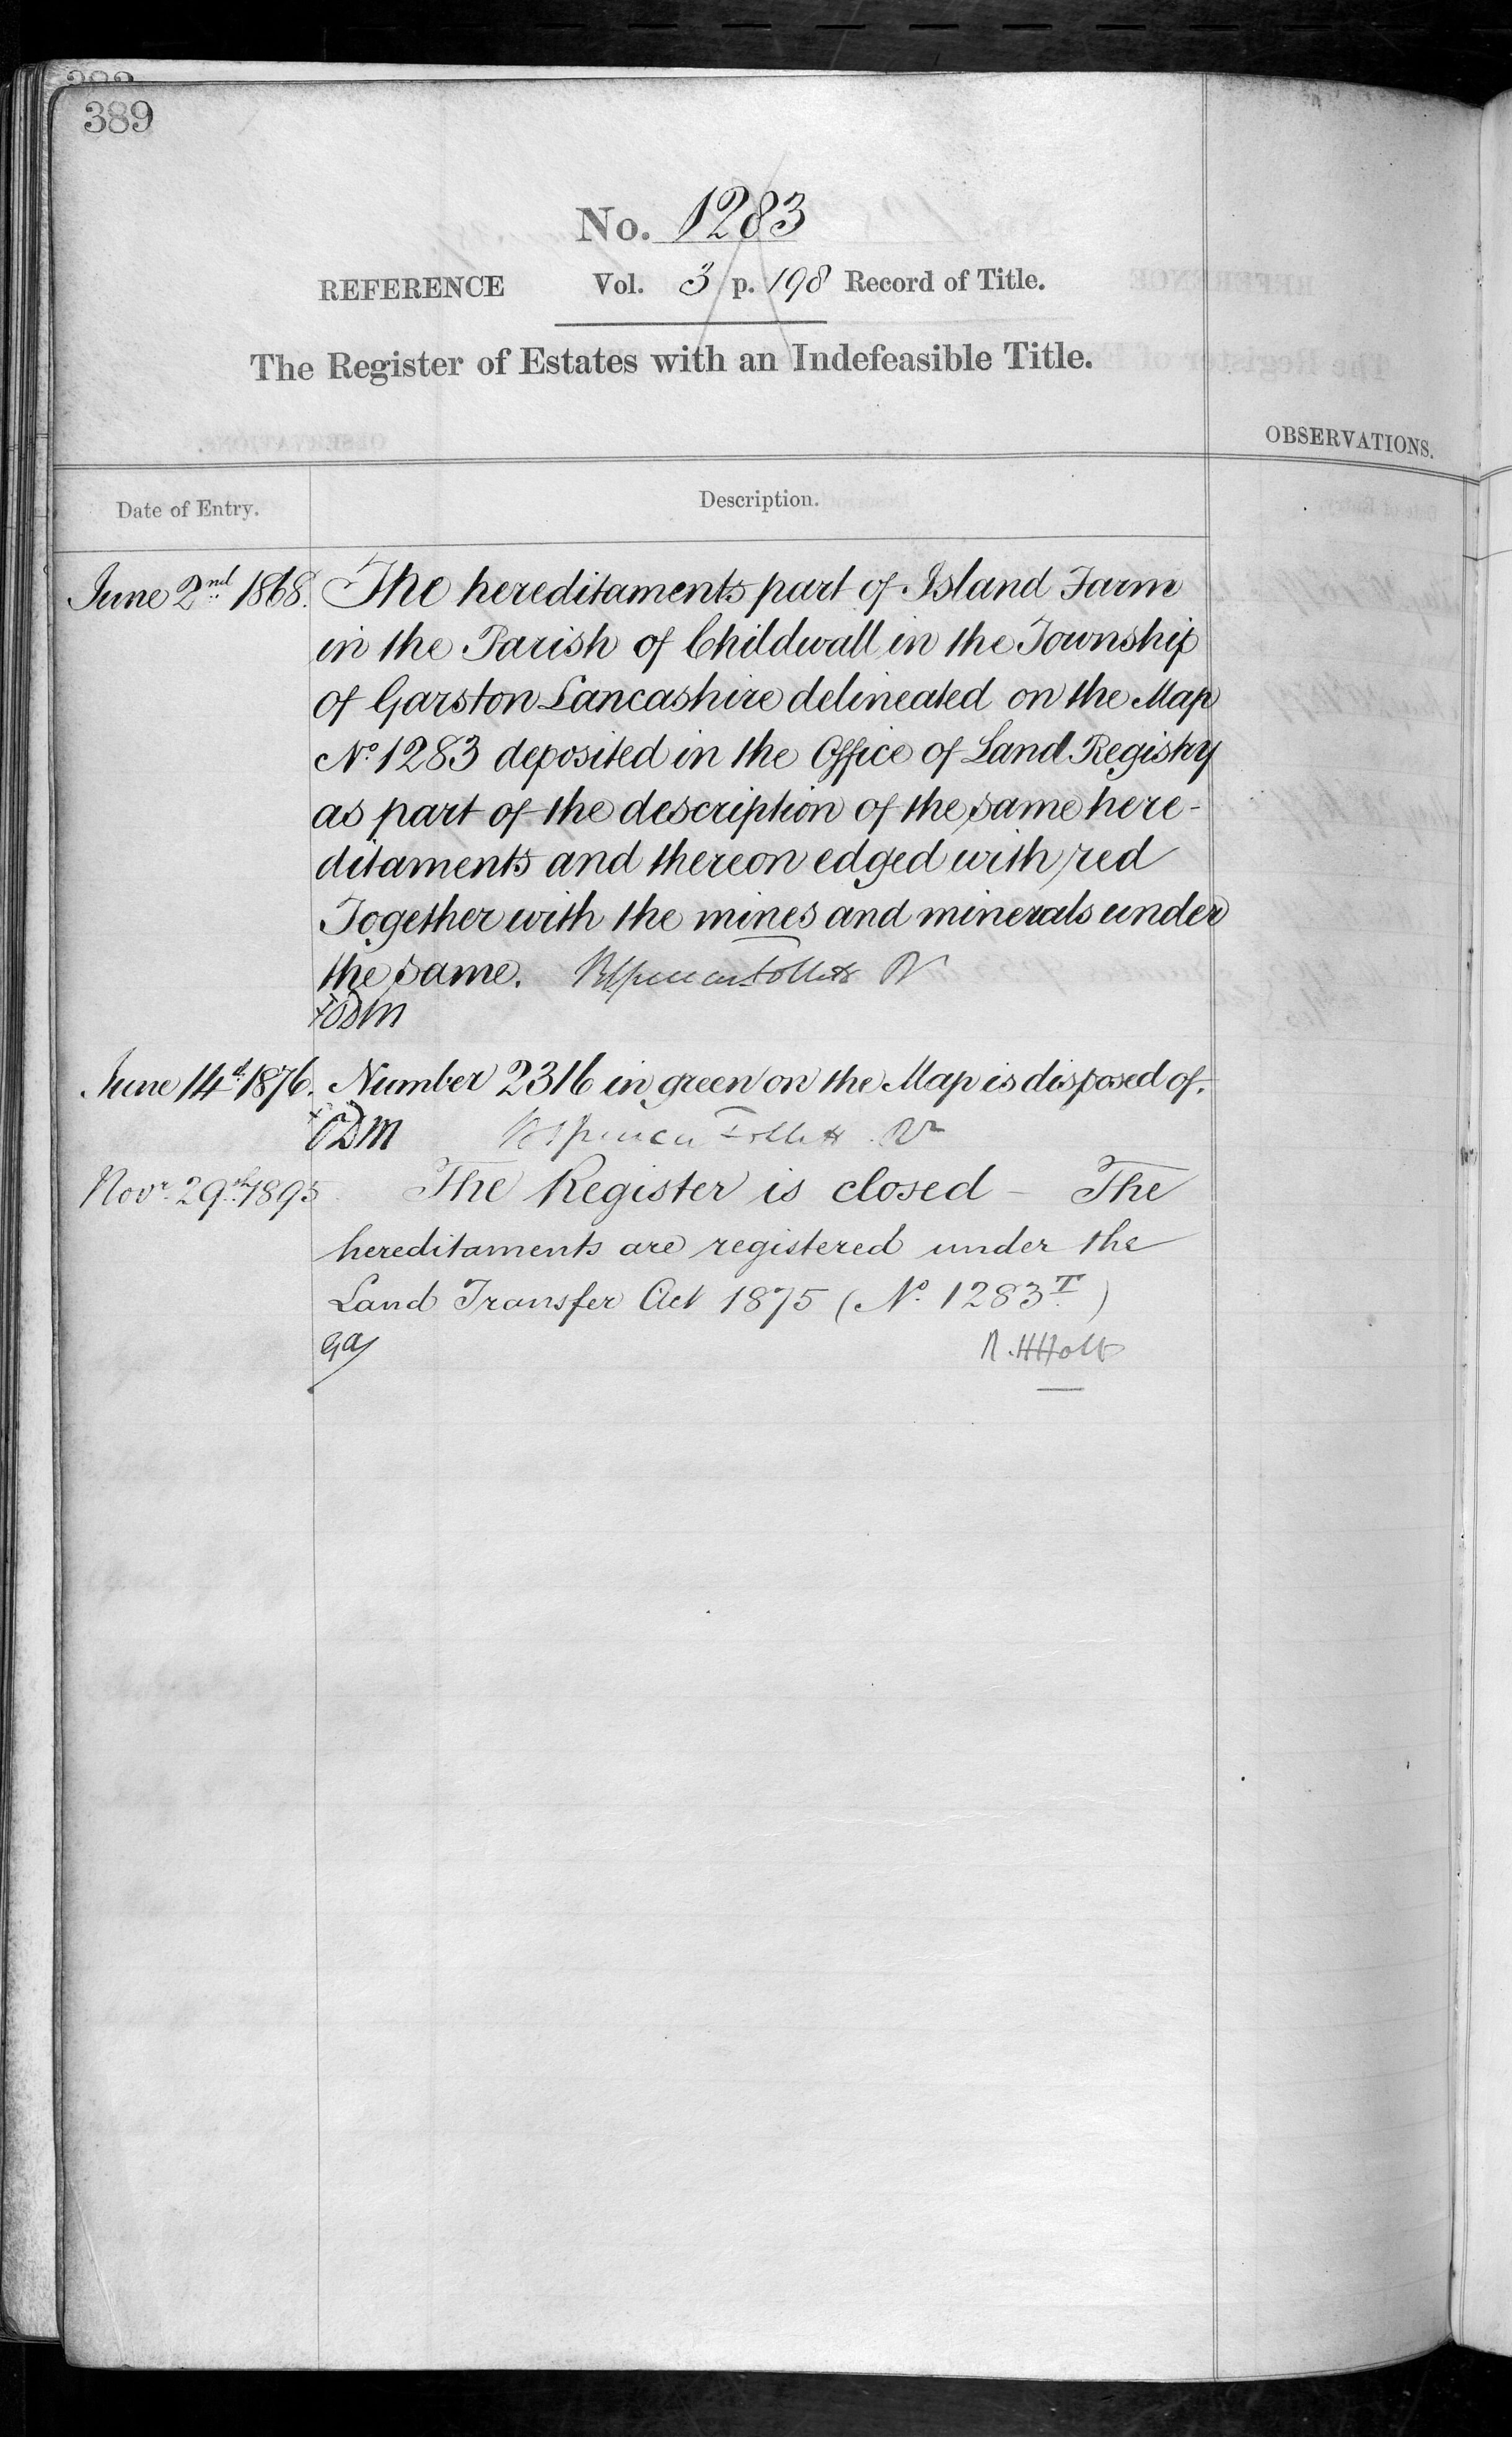 389
No. 1283
REFERENCE Vol. 3 p. 198 Record of Title.
The Register of Estates with an Indefeasible Title.
OBSERVATIONS.
Date of Entry. Description.
June 2nd 1868. The hereditaments part of Island Farm
in the Parish of Childwall in the Township
of Garston Lancashire delineated on the Map
No 1283 deposited in the Office of Land Registry
as part of the description of the same here-
ditaments and thereon edged with red
Together with the mines and minerals under
the same. Follett
ODM
June 14th 1876. Number 2316 in green on the Map is disposed of.
ODM Follett
Novr. 29th 1895 The Register is closed - The
hereditaments are registered under the
Land Transfer Act 1875 (No. 1283T.)
R.H Holt